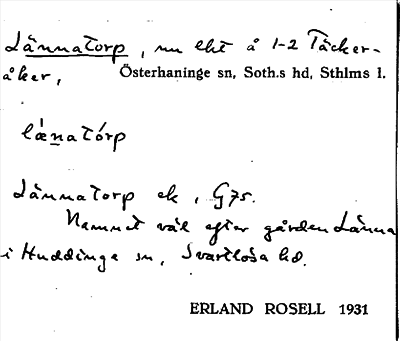 Lännatorp, nu lht å 1-2 Täcker-
åker, Österhaninge sn, Soth.s hd, Sthlms l.
lænatórp
Lännatorp ek, G75.
Namnet väl efter gården Länna
i Huddinge sn, Svartlösa hd.
ERLAND ROSELL 1931